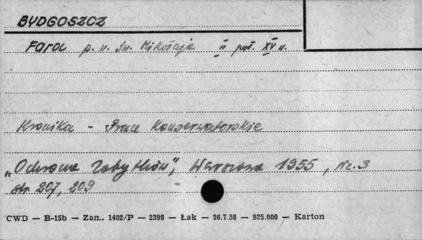 BYDGOSZCZ
Fara p. w. św. Mikołaja II poł. XV w.
Kronika - Prace Konserwatorskie
„Ochrona Zabytków", Warszawa 1955, Nr. 3
str. 207, 209
CWD — B-15b — Zam. 1402/P — 2398 — Łak — 26.7.58 — 925.000 — Karton